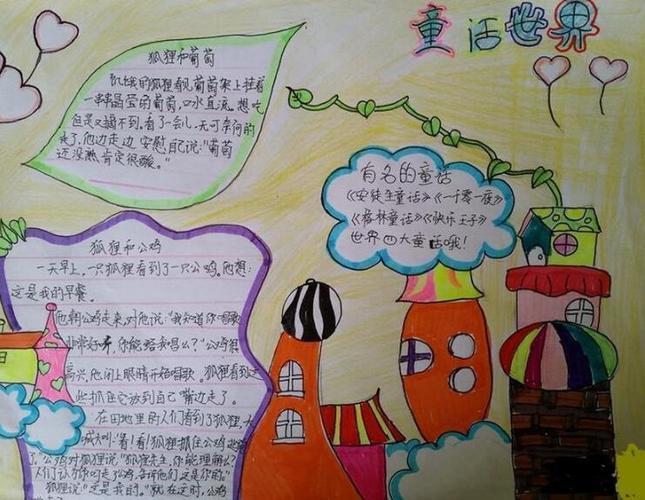 童话世界
狐狸和葡萄
饥饿的狐狸看见葡萄架上挂着
一串串晶莹的葡萄,口水直流,想吃
但是又摘不到。看了一会儿,无可奈何的
走了,他边走边安慰自己说:“葡萄
还没熟,肯定很酸。”
有名的童话
《安徒生童话》《一千零一夜》
《格林童话》《快乐王子》
世界四大童话哦!
狐狸和公鸡
一天早上,一只狐狸看到了一只公鸡。他想:
这是我的早餐。
他朝公鸡走来,对他说:“我知道你唱歌
非常好听,你能给我唱么?”公鸡很
高兴,他闭上眼睛开始唱歌。狐狸看到这
些抓住它放到自己嘴边走了。
在田地里的人们看到了狐狸,大
喊大叫:“看!看!狐狸抓住公鸡
了。”公鸡对狐狸说:“狐狸先生,你能理解么?
人们认为你叼走了公鸡,告诉他们这是你的。”
狐狸说:“这是我的。”就在这时,公鸡